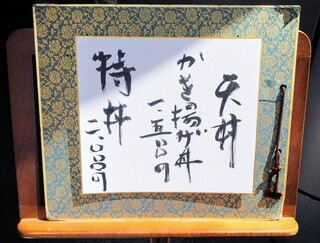 天丼
かきの揚げ丼
一.五〇〇円
特丼
二.〇〇〇円